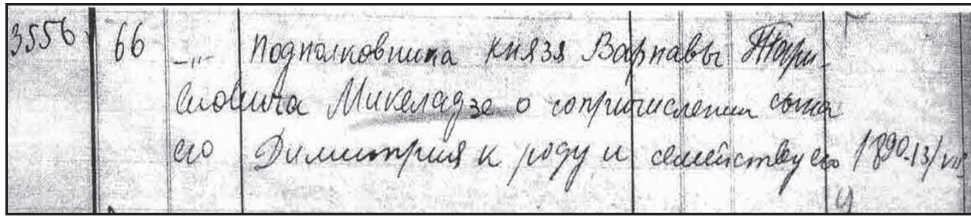 3556 66 —„— Подполковника князя Варнавы
Микеладзе о сопричислении сына
его Димитрия к роду и семейству его 1890-13/VII